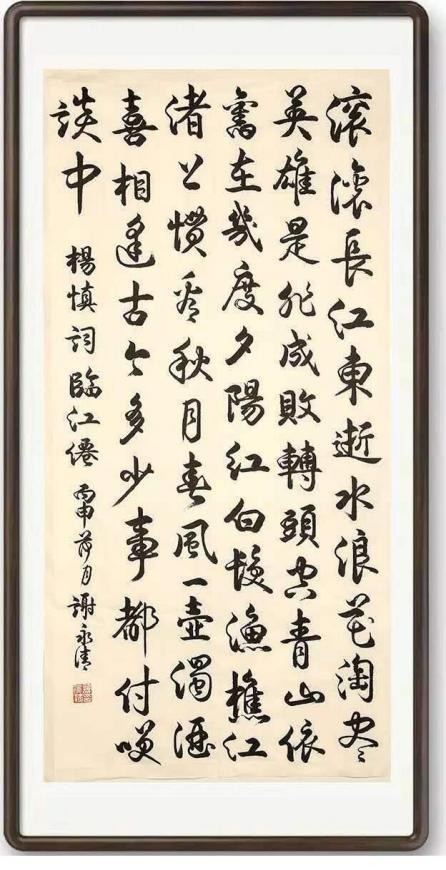 滚滚長江東逝水浪花淘尽
英雄是非成敗轉頭空青山依
舊在幾度夕陽紅白髮漁樵江
渚上慣看秋月春風一壺濁酒
喜相逢古今多少事都付笑
談中
楊慎詞臨江僊 丙申月謝永清